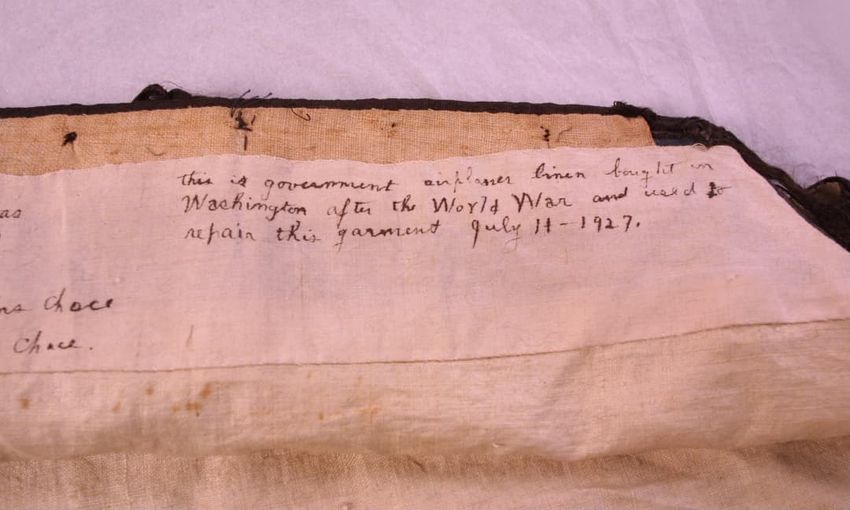 this is government airplanes linen bought in
Washington after the World War and used to
repair this garment July 11-1927.
as
ns Chace
Chace.